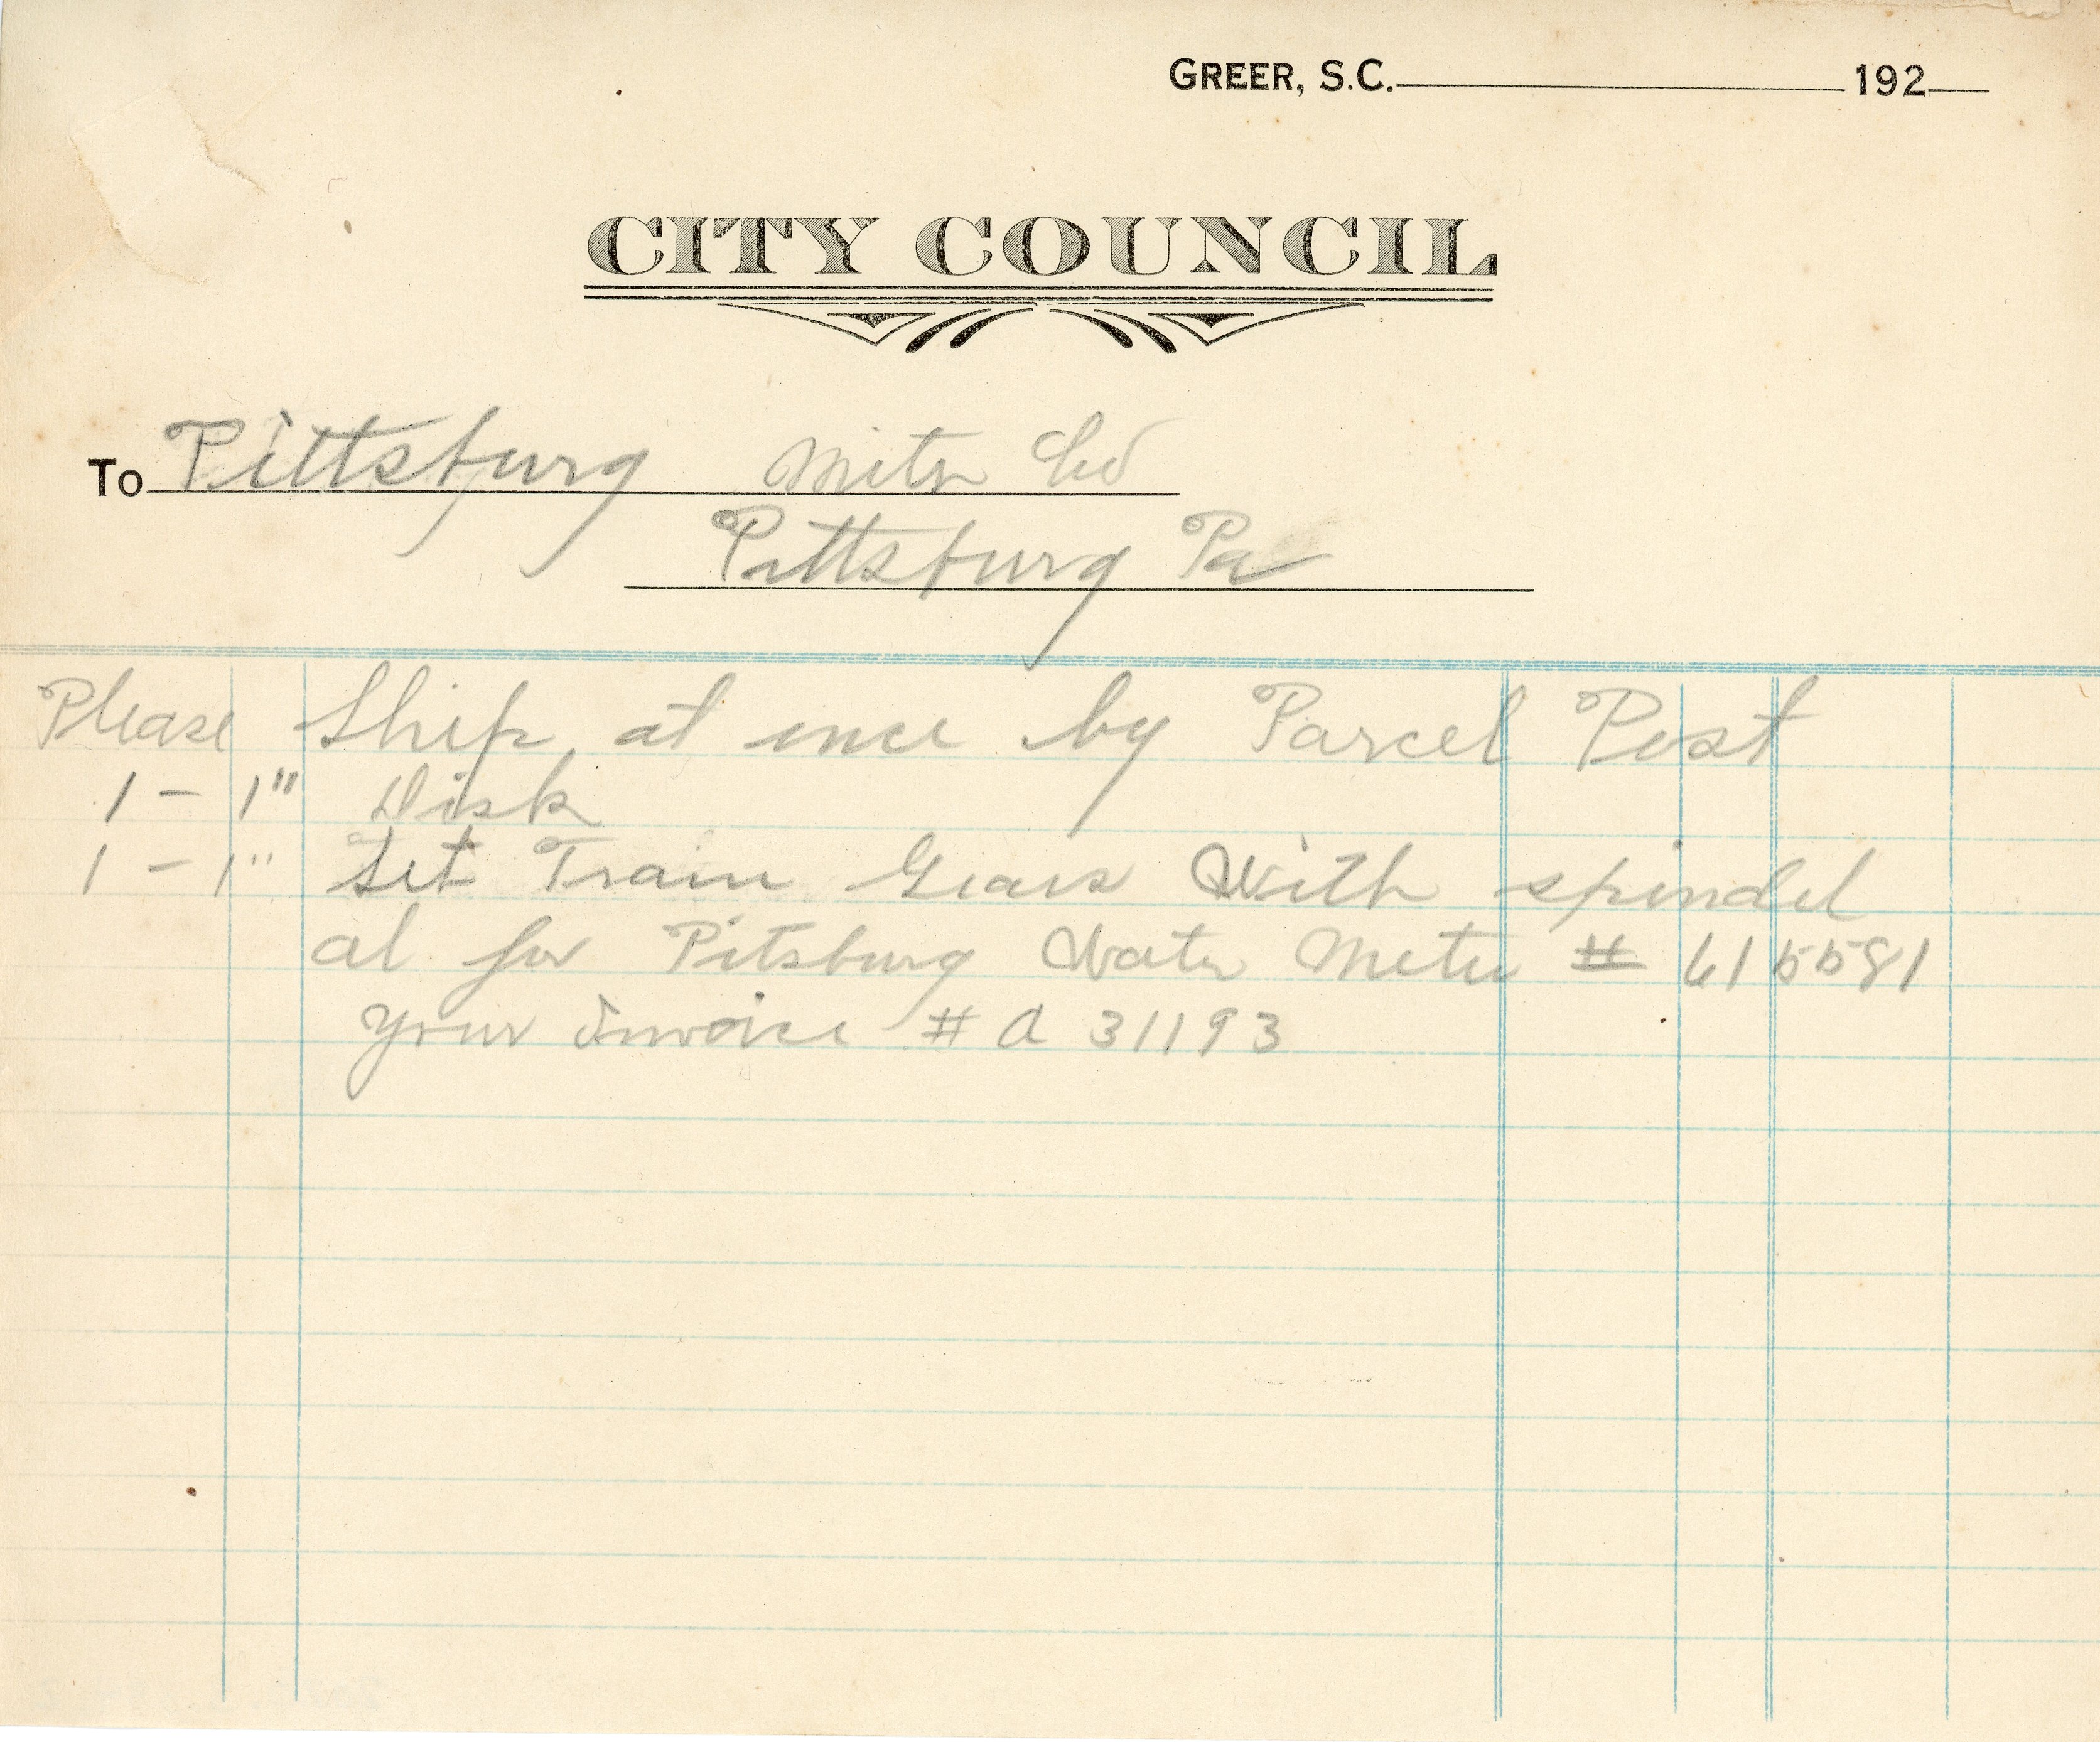 GREER, S.C. 192
CITY COUNCIL
To Pittsburg Meter Co
Pittsburg Pa
Please Ship at once by Parcel Post
1 - 1" Disk
1 - 1" Set Train Gears With spindel
al for Pitsburg Water Meter # 615581
Your Invoice # A 31193